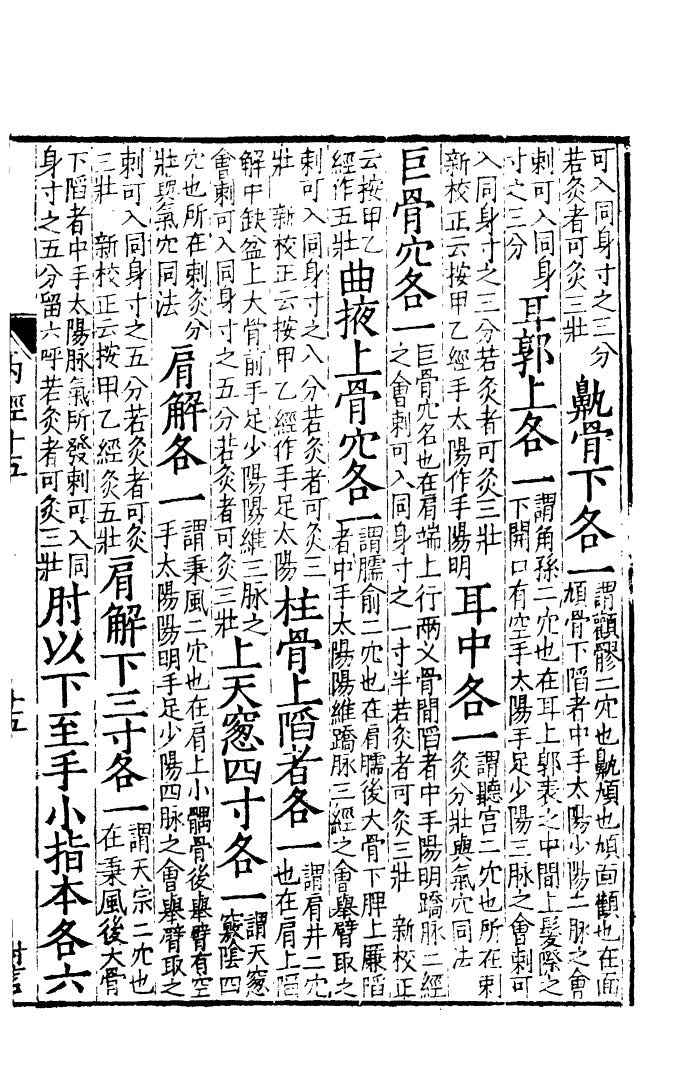 可入同身寸之三分
若灸者可灸三壯
鼽骨下各一
謂顴髎二穴也鼽頄也頄面顴也在面
頄骨下陷者中手太陽少陽二脉之會
刺可入同身
寸之三分
耳郭上各一
謂角孫二穴也在耳上郭表之中間上髮際之
下開口有空手太陽手足少陽三脉之會刺可
入同身寸之三分若灸者可灸三壯
新校正云按甲乙經手太陽作手陽明
耳中各一
謂聽宫二穴也所在刺
灸分壯與氣穴同法
巨骨穴各一
巨骨穴名也在肩端上行兩叉骨間陷者中手陽明蹻脉二經
之會刺可入同身寸之一寸半若灸者可灸三壯 新校正
云按甲乙
經作五壯
曲掖上骨穴各一
謂臑俞二穴也在肩臑後大骨下胛上廉陷
者中手太陽陽維蹻脉三經之會舉臂取之
刺可入同身寸之八分若灸者可灸三
壯 新校正云按甲乙經作手足太陽
柱骨上陷者各一
謂肩井二穴
也在肩上陷
解中缺盆上大骨前手足少陽陽維三脉之
會刺可入同身寸之五分若灸者可灸三壯
上天窻四寸各一
謂天窻
竅陰四
穴也所在刺灸分
壯與氣穴同法
肩解各一
謂秉風二穴也在肩上小髃骨後舉臂有空
手太陽陽明手足少陽四脉之會舉臂取之
刺可入同身寸之五分若灸者可灸
三壯 新校正云按甲乙經灸五壯
肩解下三寸各一
謂天宗二穴也
在秉風後大骨
下陷者中手太陽脉氣所發刺可入同
身寸之五分留六呼若灸者可灸三壯
肘以下至手小指本各六
内經十五
十五